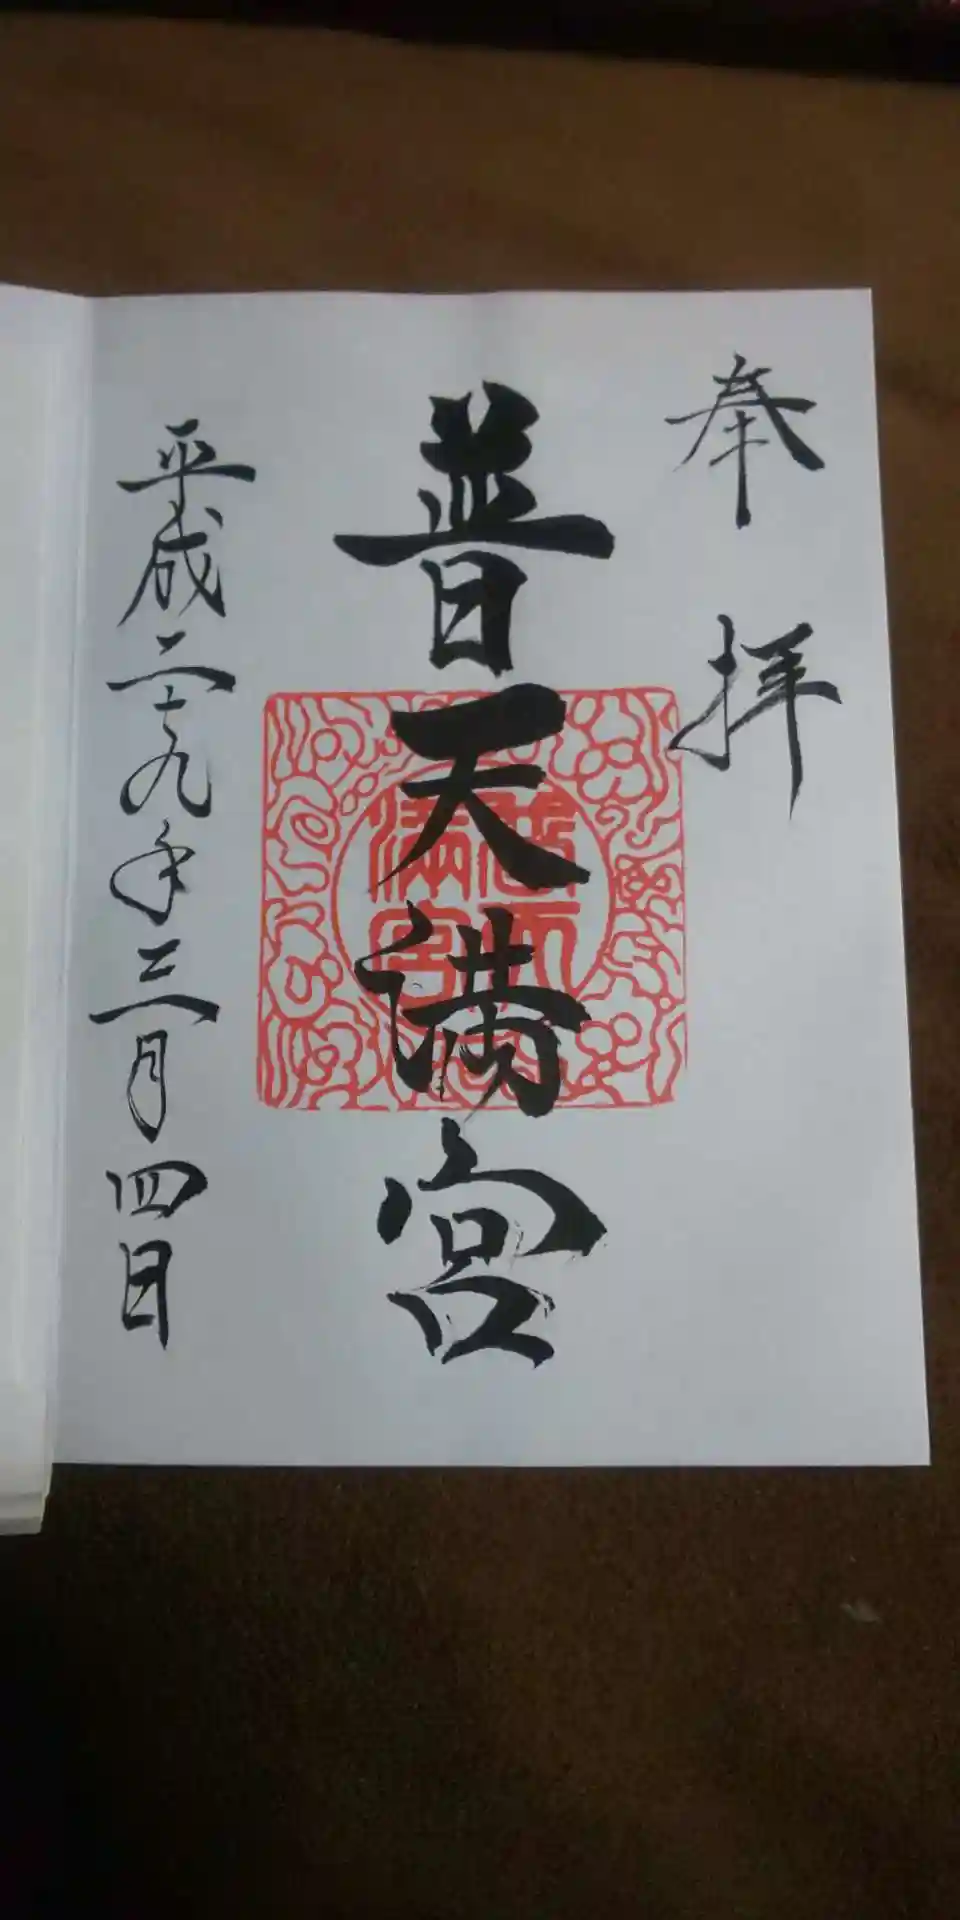 奉拝
普天満宮
平成二十九年三月四日